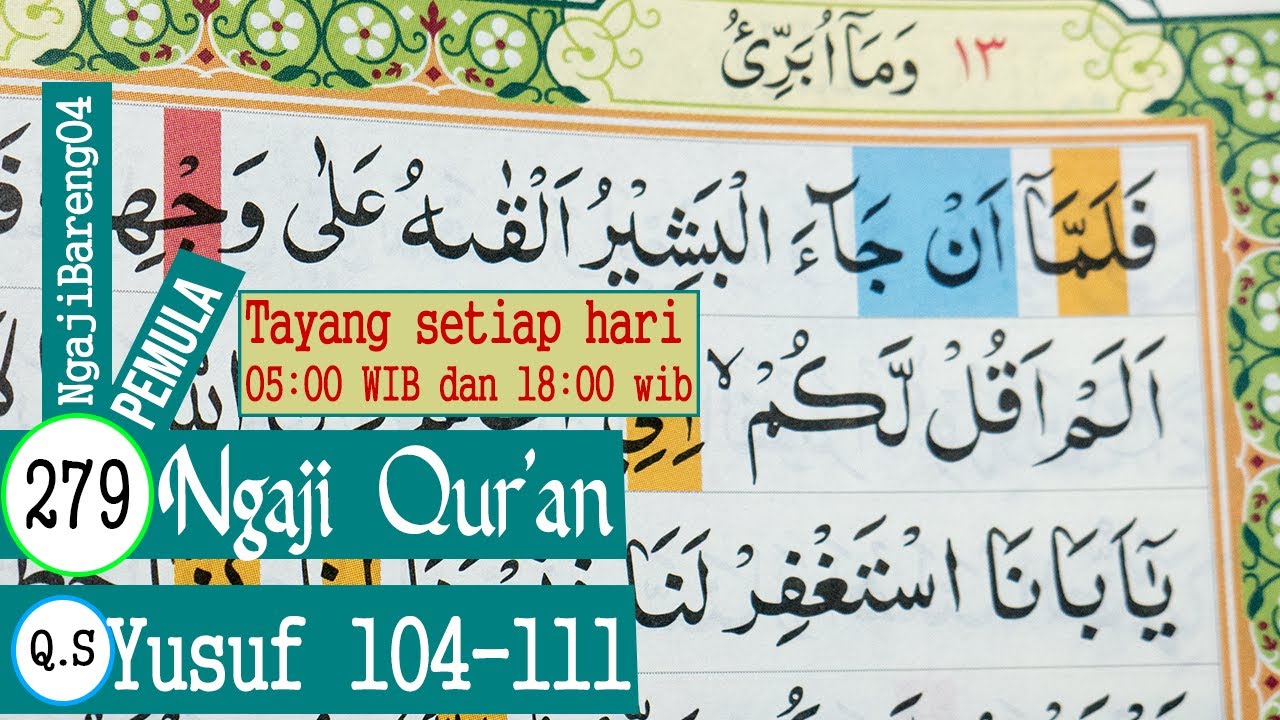 وَمَآ اُبَرِّئُ ١٣
فَلَمَّآ اَنْ جَآءَ الْبَشِيْرُ اَلْقٰىهُ عَلٰى وَجْهِهٖ
اَلَمْ اَقُلْ لَّكُمْ ۙ اِنِّيْٓ
يٰٓاَبَانَا اسْتَغْفِرْ لَنَا
NgajiBareng04
PEMULA
Tayang setiap hari
05:00 WIB dan 18:00 wib
279 Ngaji Qur'an
Q.S Yusuf 104-111